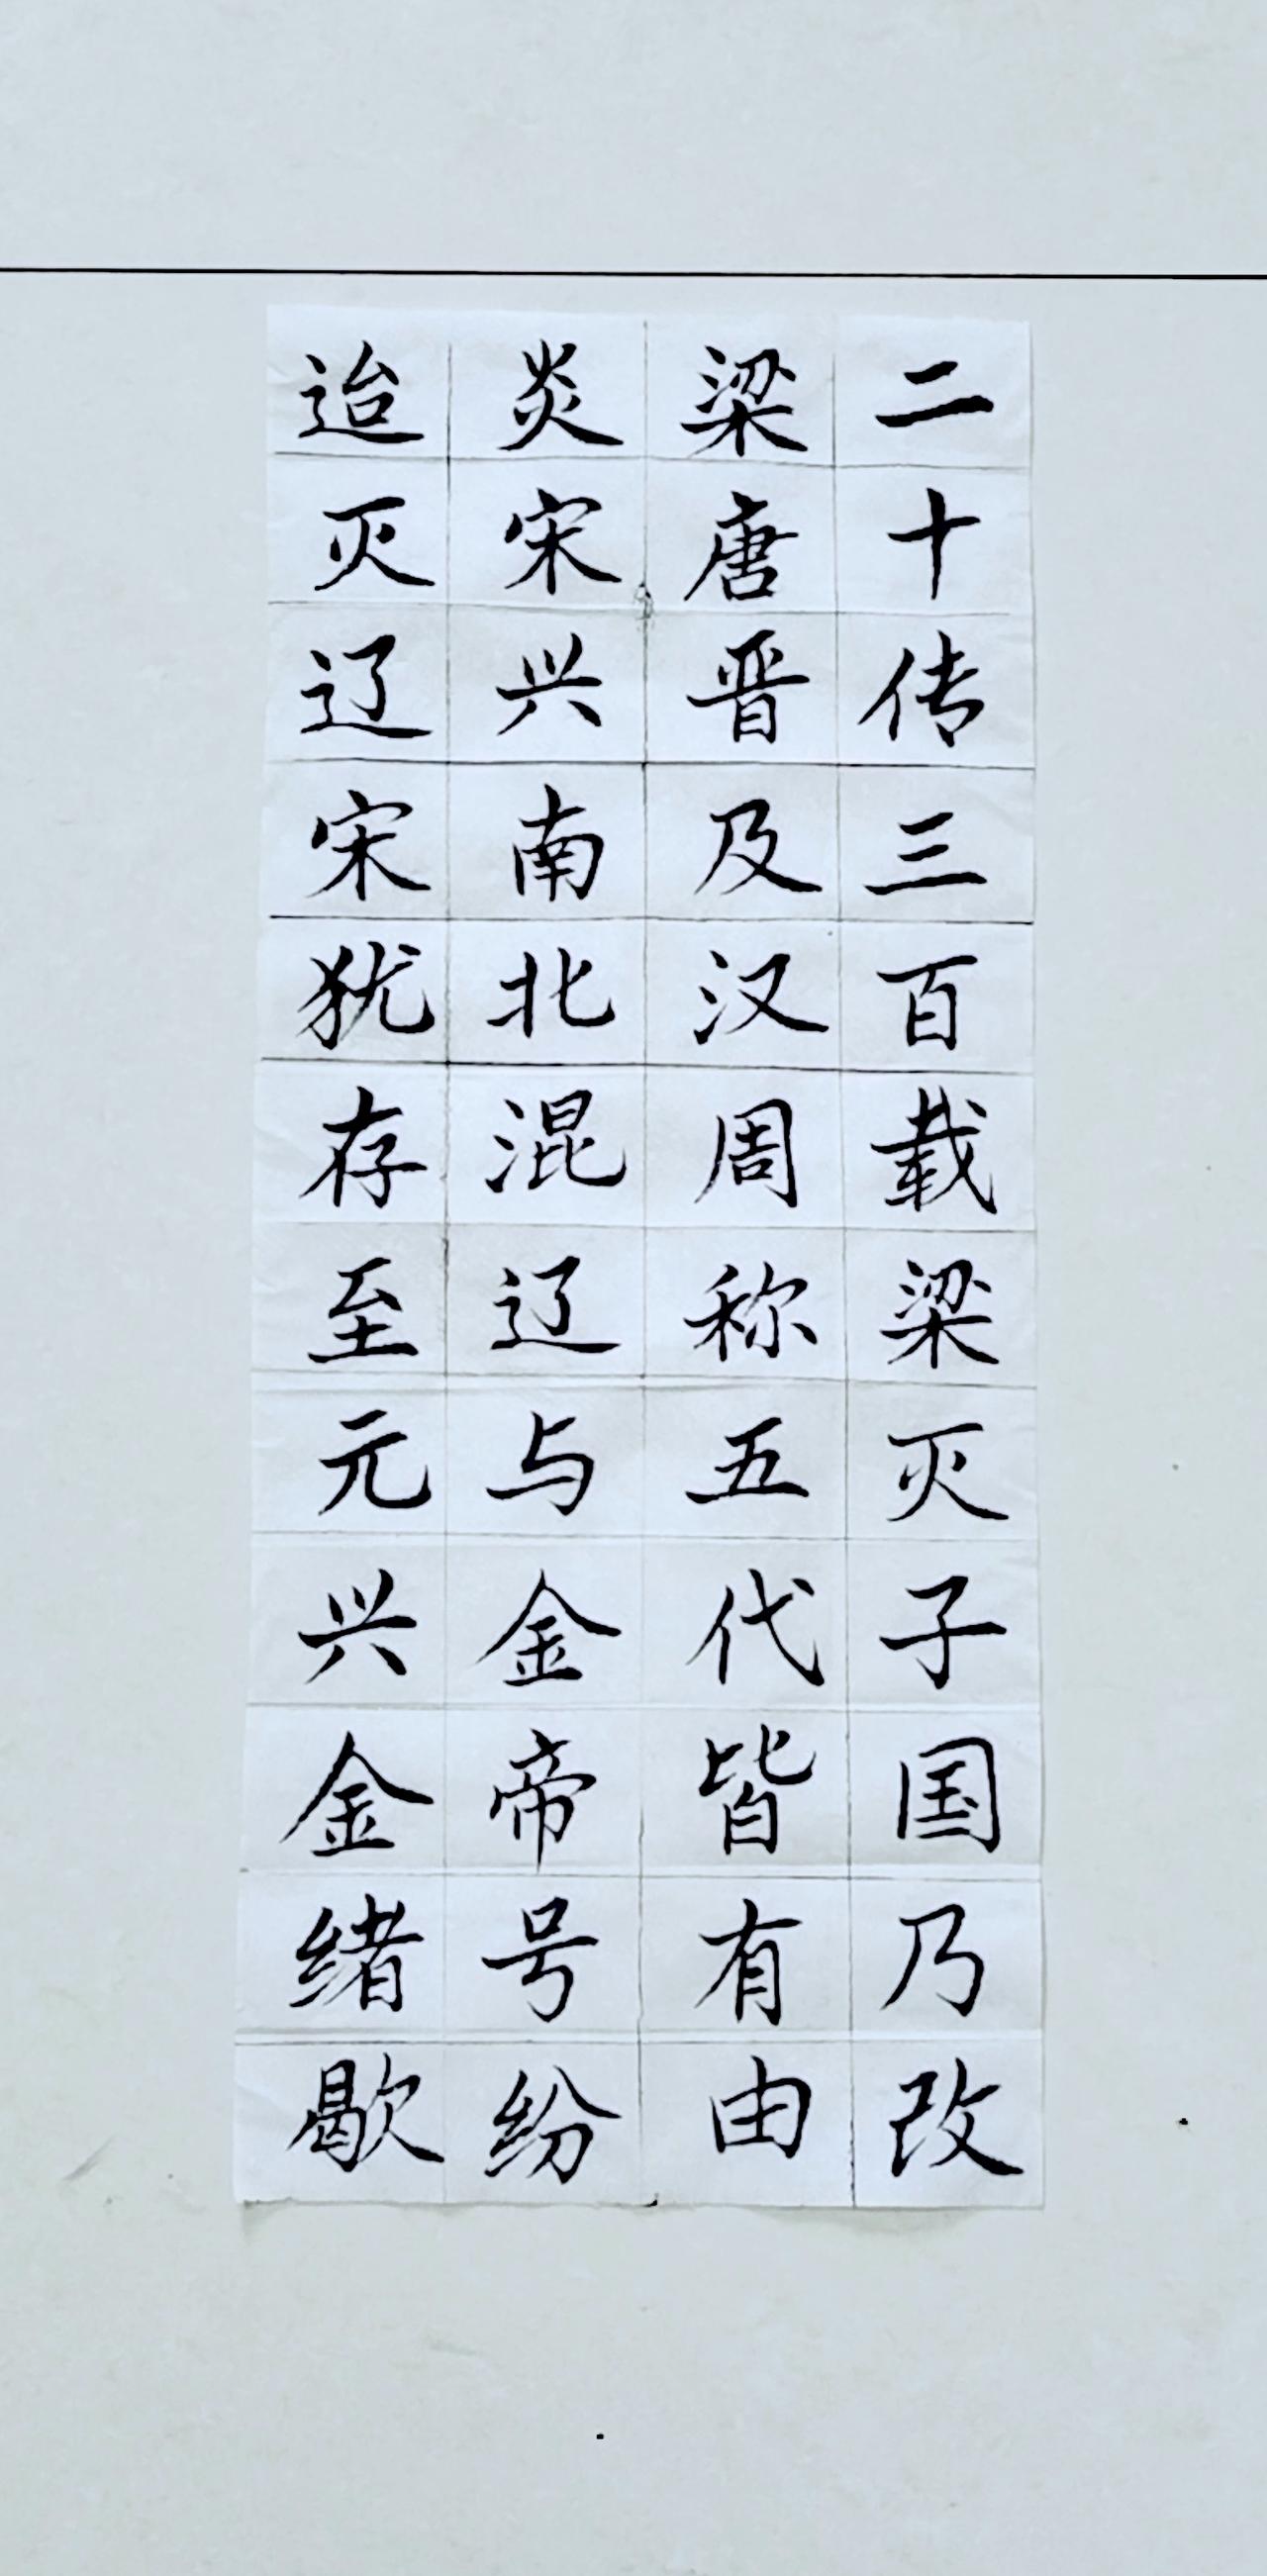 二十传三百载梁灭子国乃改
梁唐晋及汉周称五代皆有由
炎宋兴南北混辽与金帝号纷
迨灭辽宋犹存至元兴金绪歇